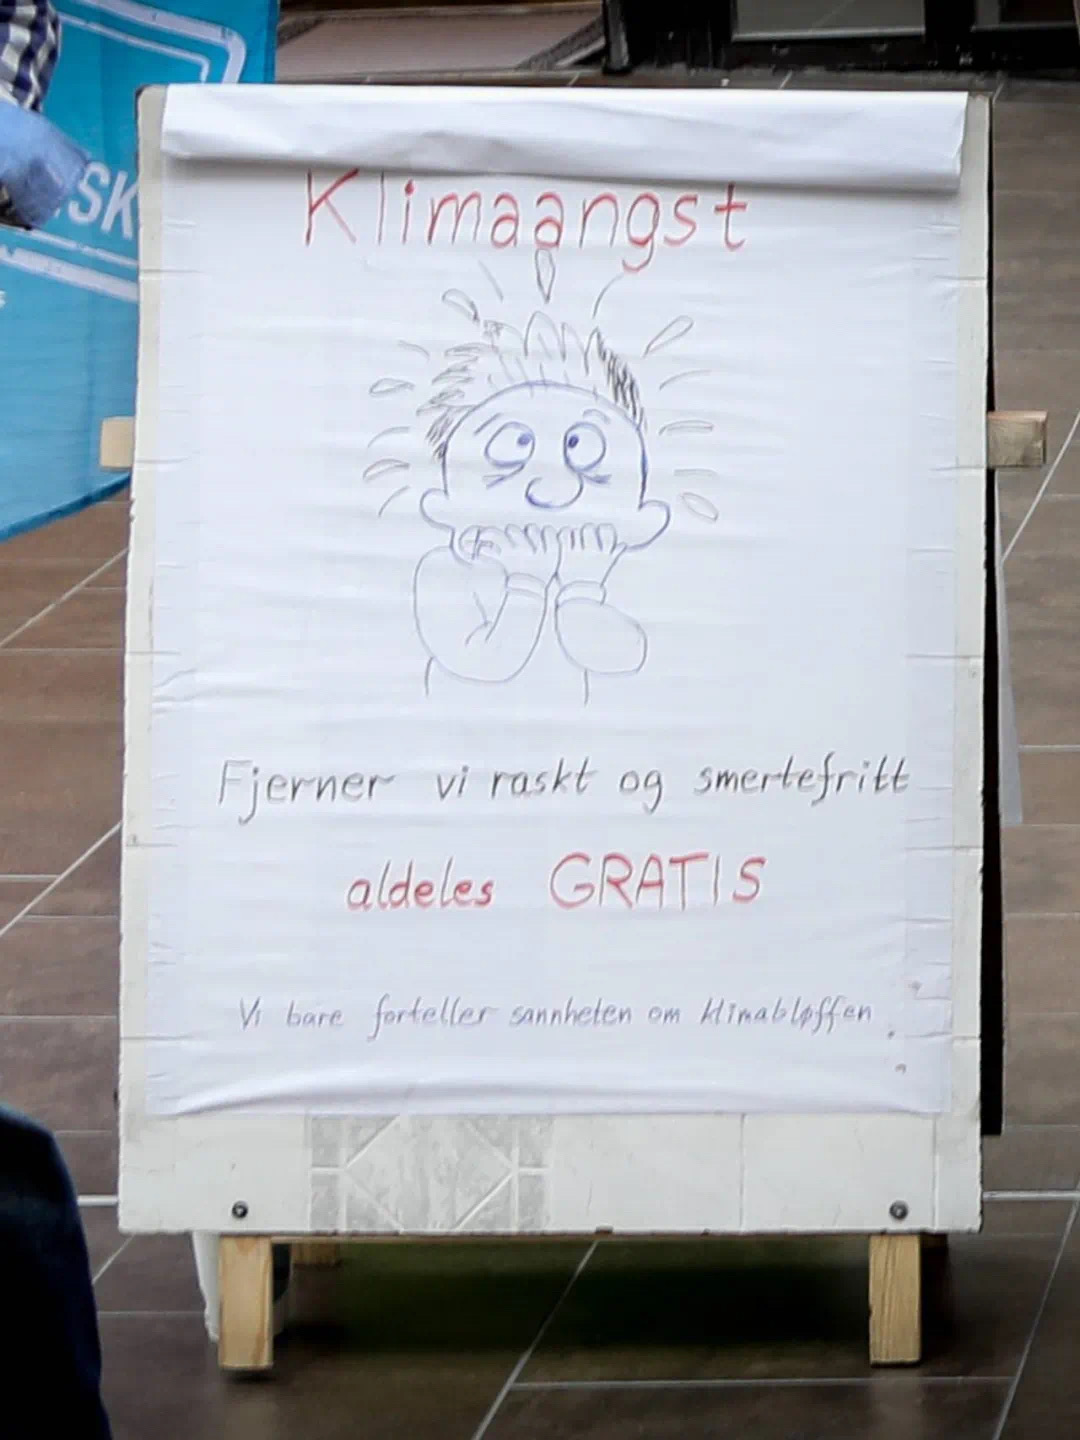 SK
Klimaangst
Fjerner vi raskt og smertefritt
aldeles GRATIS
Vi bare forteller sannheten om klimabløffen.